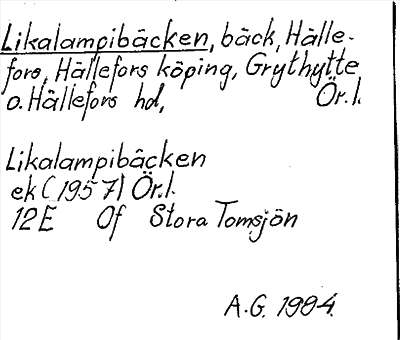 Likalampibäcken, bäck, Hälle-
fors, Hällefors köping, Grythytte
o. Hällefors hd, Ör.l.
Likalampibäcken
ek (1957) Ör.l.
12E Of Stora Tomsjön
A.G. 1984.